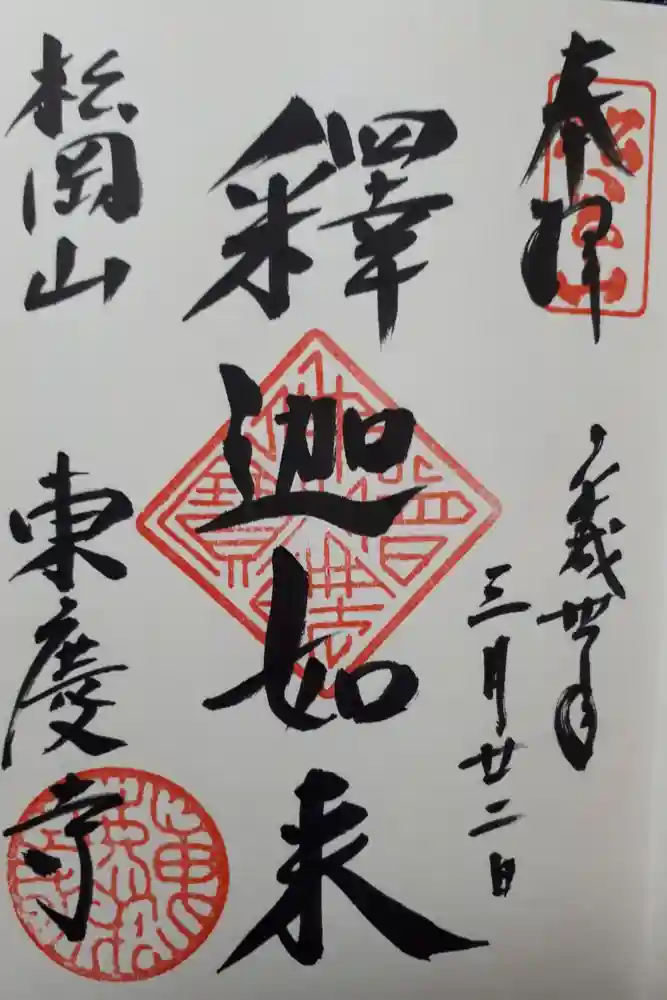 奉拝
平成丗年
三月廿二日
釋迦如来
松岡山
東慶寺